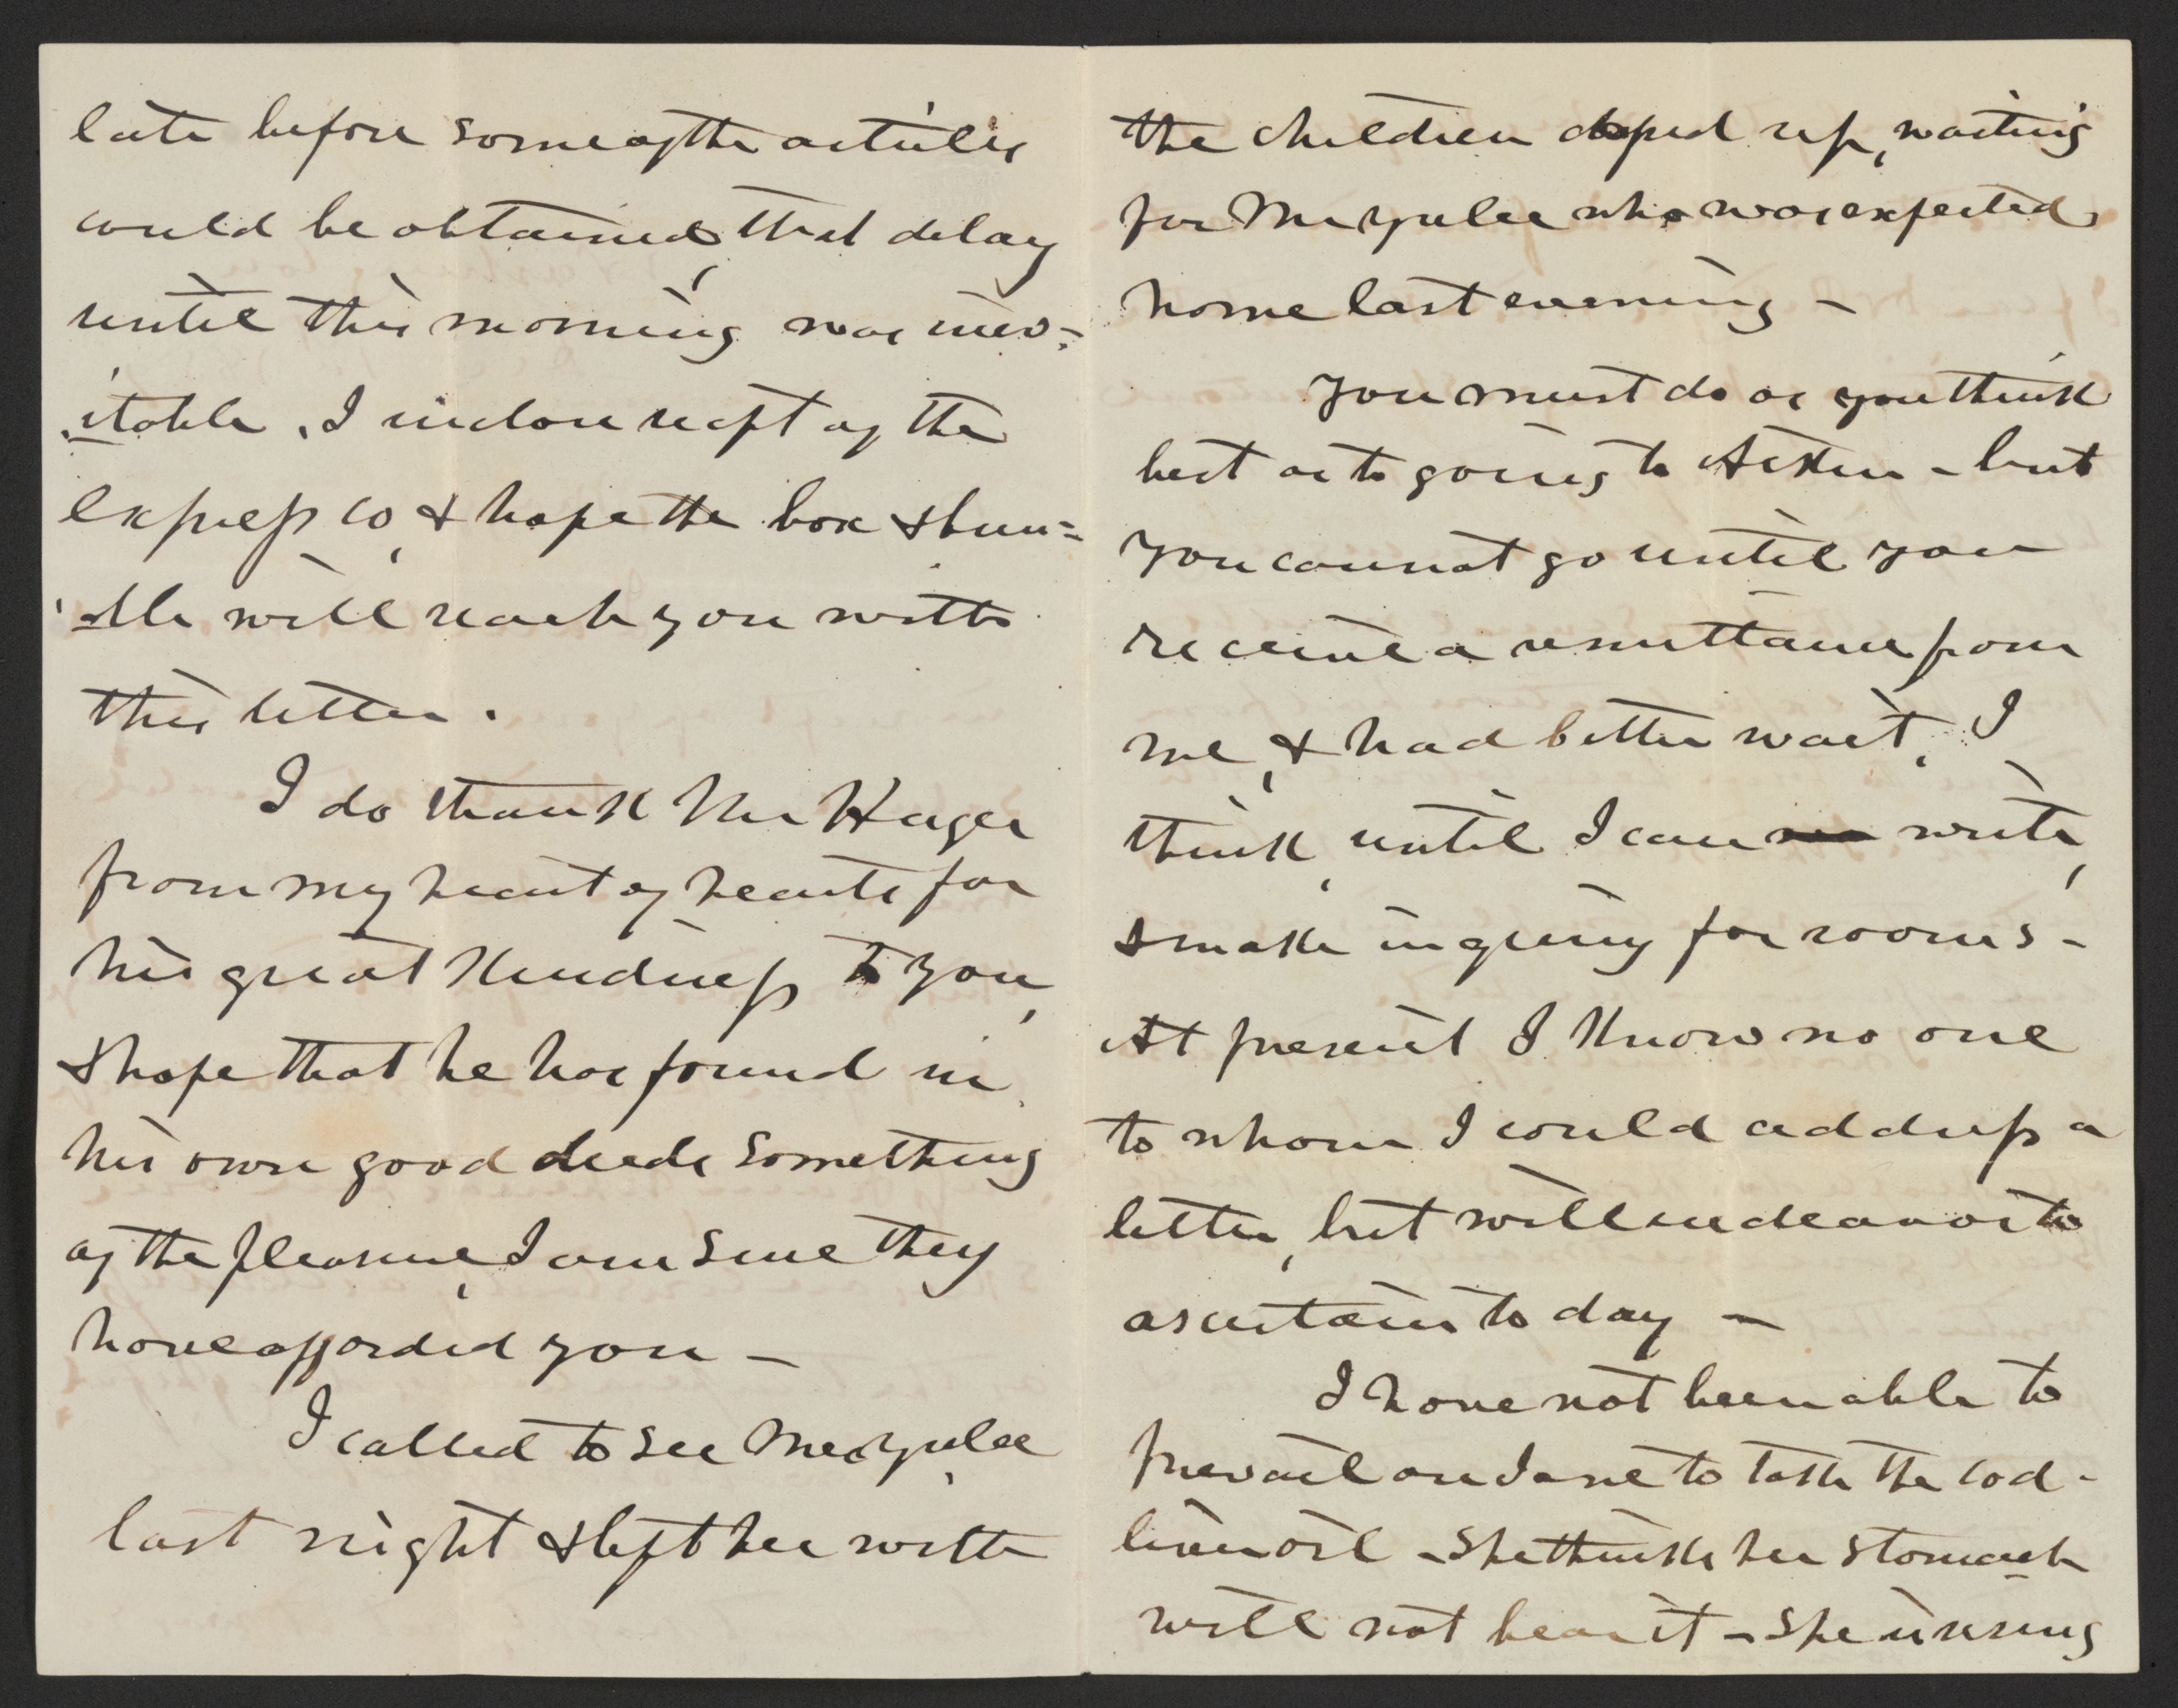 late before some of the articles
could be obtained, that delay
until this morning was inev-
itable. I inclose recpt of the
express co, & hope the box & bun=
dle will reach you with
this letter.
I do thank Mr Huger
from my heart of hearts for
his great kindness to you,
& hope that he has found in
his own good deeds something
of the pleasure, I am sure they
have afforded you -
I called to see Mrs Yulee
last night & left her with
the children up, waiting
for Mr Yulee who was expected
home last evening -
You must do as you think
best as to going to Aiken - but
you cannot go until you
receive a remittance from
me, & had better wait, I
think, until I can write,
& make inquiry for rooms -
At present I know no one
to whom I could address a
letter, but will endeavor to
ascertain to day -
I have not been able to
prevail on Jane to take the cod-
liver oil - She thinks her stomach
will not bear it - She is using